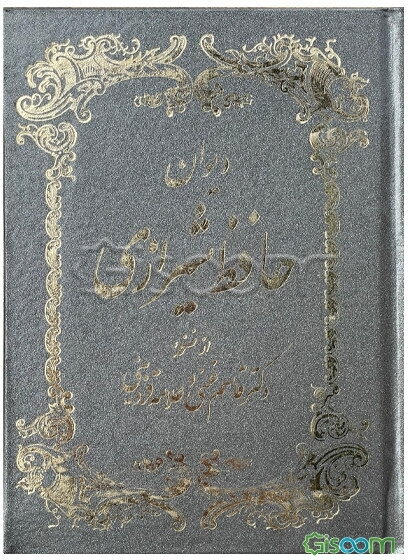 دیوان
حافظ شیرازی
از نسخه
دکتر قاسم غنی و علامه قزوینی
Gisoom